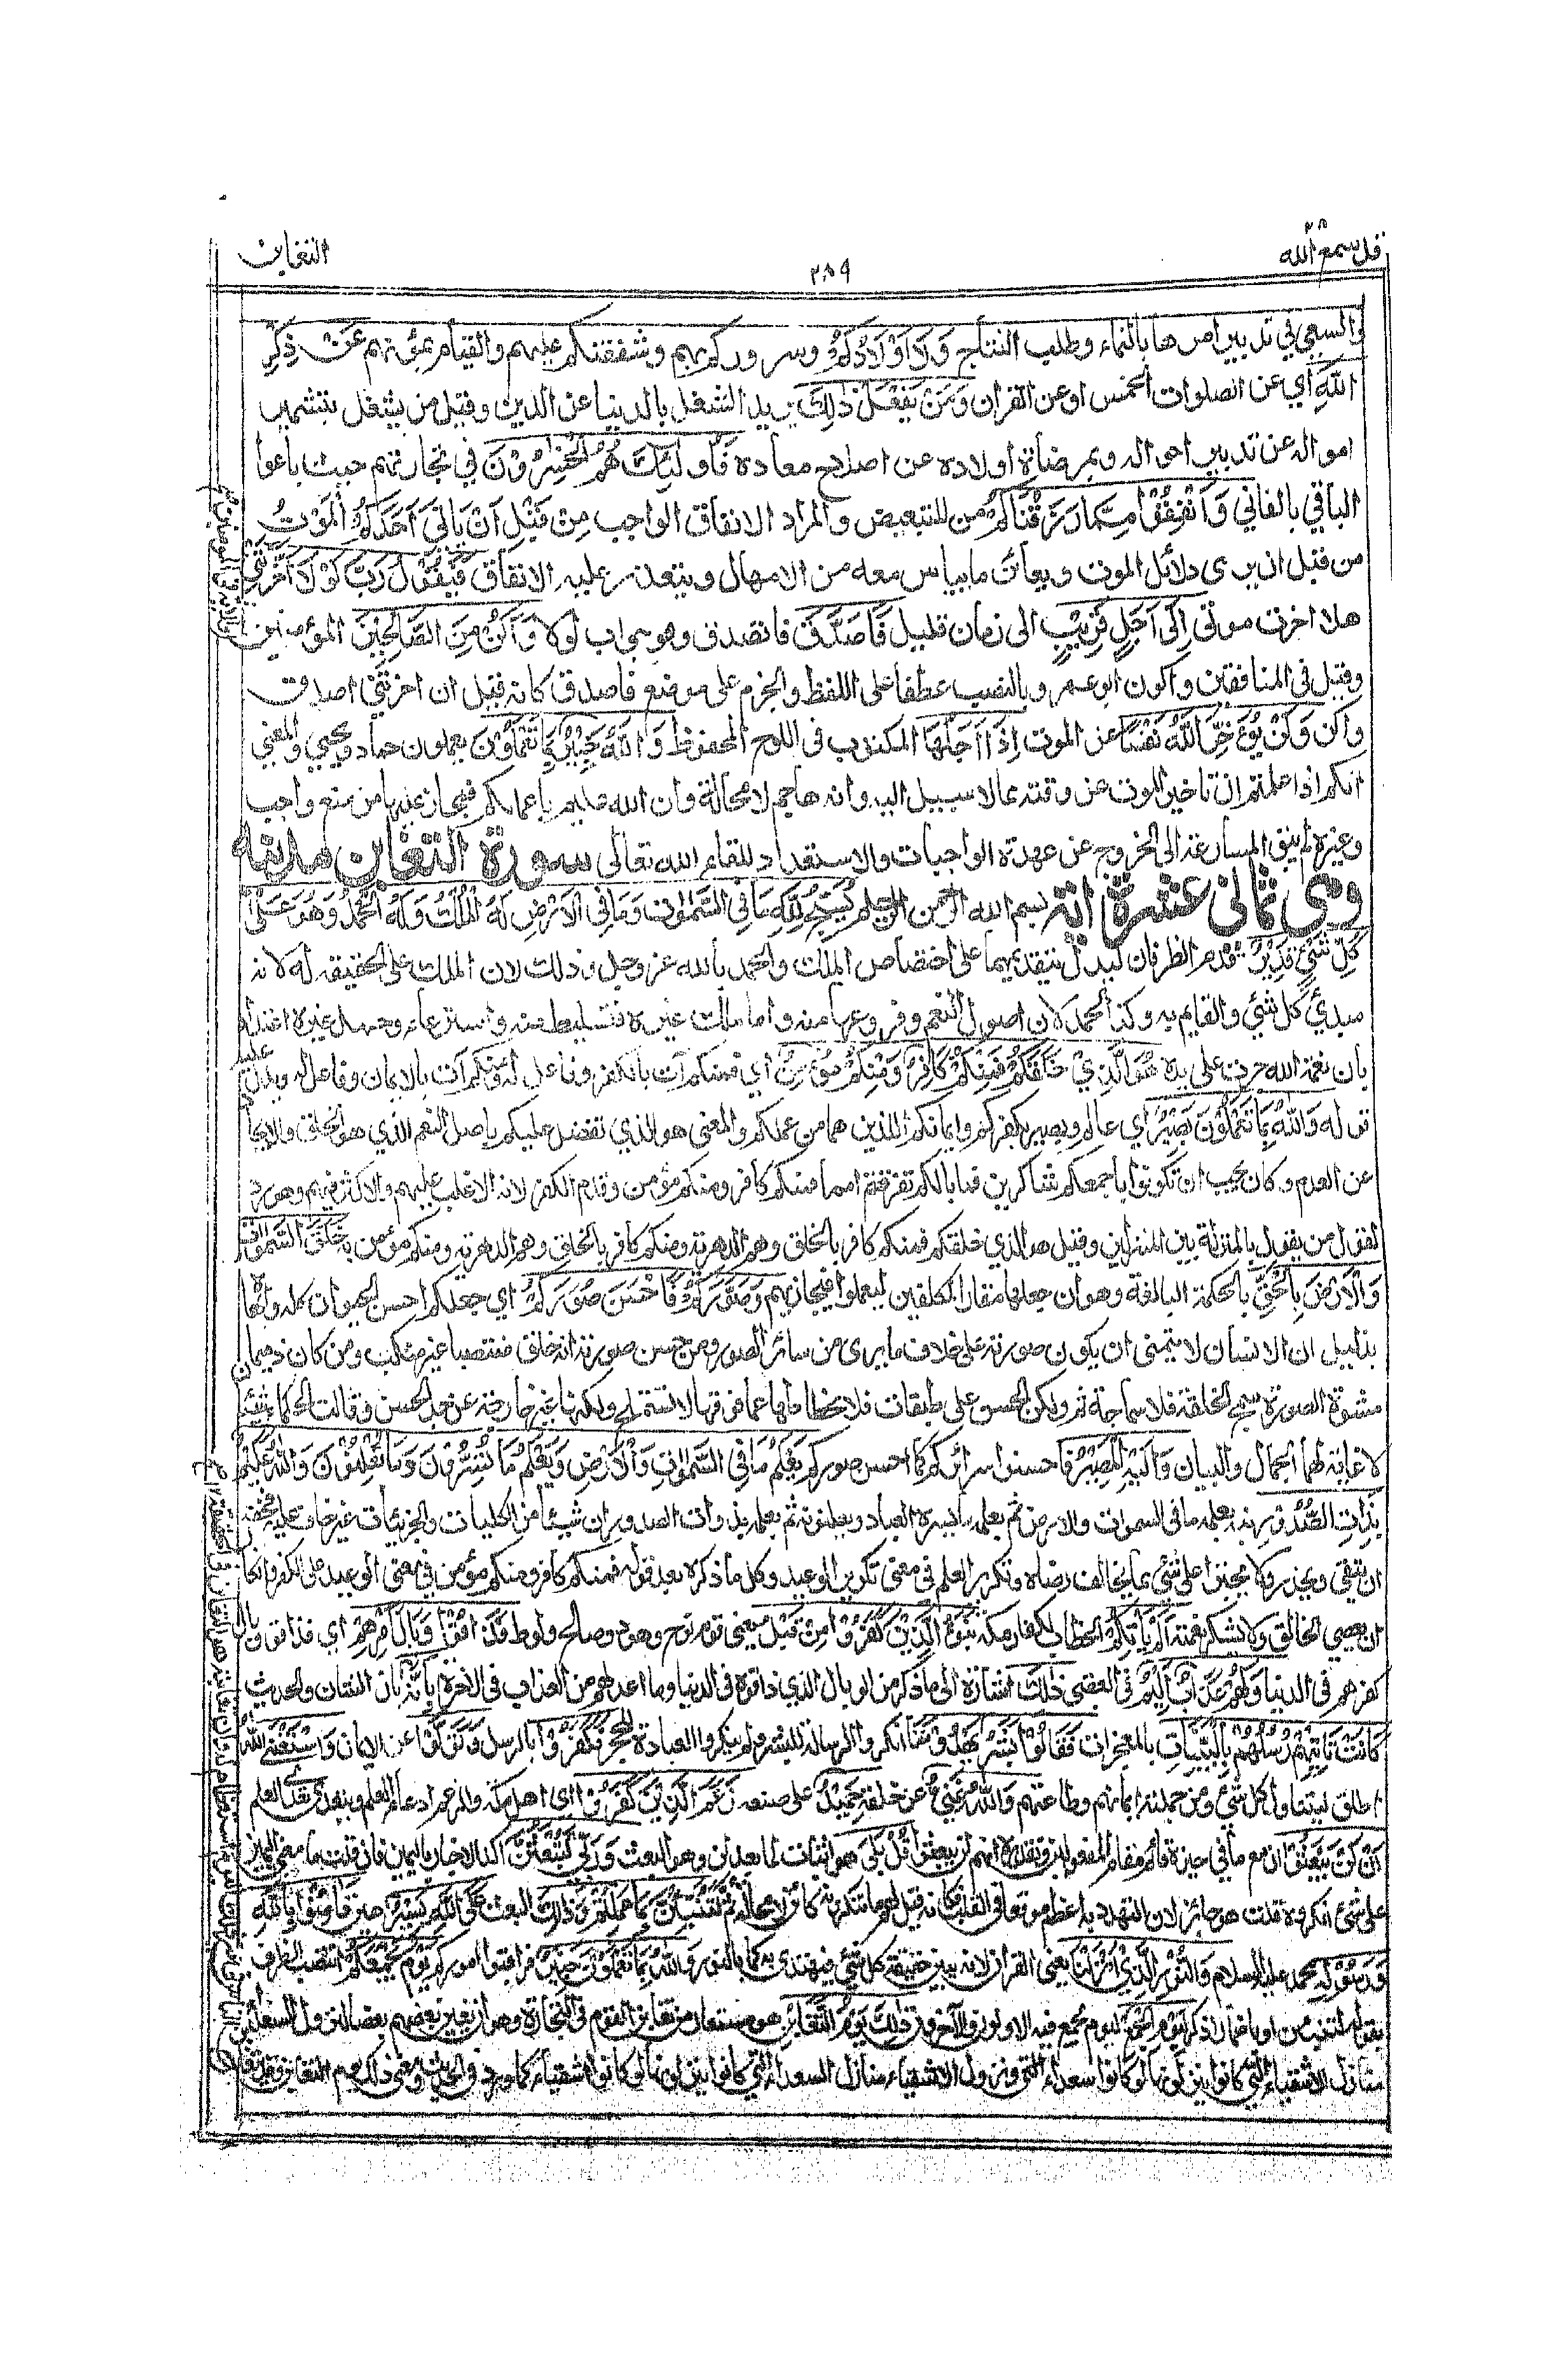 قد سمع الله ٢٨
٢٨٩
التغابن
والسعي في تدبير امرها بالنماء وطلب النتاج وَلَا أَوْلَادُكُمْ وسروركم بهم وشفقتكم عليهم والقيام بمؤنهم عَنْ ذِكْرِ
اللّٰهِ اي عن الصلوات الخمس او عن القران وَمَنْ يَفْعَلْ ذٰلِكَ يريد الشغل بالدنيا عن الدين وقيل من يشغل بتثمير
امواله عن تدبير احواله وبمرضاة اولاده عن اصلاح معاده فَأُولٰئِكَ هُمُ الْخٰسِرُوْنَ في تجارتهم حيث باعوا
الباقي بالفاني وَأَنْفِقُوْا مِمَّا رَزَقْنَاكُمْ من للتبعيض والمراد الانفاق الواجب مِنْ قَبْلِ أَنْ يَأْتِيَ أَحَدَكُمُ الْمَوْتُ
من قبل ان يرى دلائل الموت ويعاين ما ييأس معه من الامهال ويتعذر عليه الانفاق فَيَقُوْلَ رَبِّ لَوْلَا أَخَّرْتَنِيْ
هلا اخرت موتي إِلٰى أَجَلٍ قَرِيْبٍ الى زمان قليل فَأَصَّدَّقَ فاتصدق وهو جواب لولا وَأَكُنْ مِنَ الصَّالِحِيْنَ المؤمنين
وقيل في المنافقين واكون ابو عمرو بالنصب عطفا على اللفظ والجزم على موضع فاصدق كانه قيل ان اخرتني اصدق
واكن وَلَنْ يُؤَخِّرَ اللّٰهُ نَفْسًا عن الموت إِذَا جَاءَ أَجَلُهَا المكتوب في اللوح المحفوظ وَاللّٰهُ خَبِيْرٌ بِمَا تَعْمَلُوْنَ يعملون حماد ويحيى والمعنى
انكم اذا علمتم ان تاخير الموت عن وقته مما لا سبيل اليه وانه هاجم لا محالة وان الله عليم باعمالكم فمجاز عليها من منع واجب
وغيره لم يبق الا المسارعة الى الخروج عن عهدة الواجبات والاستعداد للقاء الله تعالى سورة التغابن مدنية
وهي ثماني عشرة اية بسم الله الرحمن الرحيم يُسَبِّحُ لِلّٰهِ مَا فِي السَّمٰوٰتِ وَمَا فِي الْأَرْضِ لَهُ الْمُلْكُ وَلَهُ الْحَمْدُ وَهُوَ عَلٰى
كُلِّ شَيْءٍ قَدِيْرٌ قدم الظرفان ليدل بتقديمهما على اختصاص الملك والحمد بالله عز وجل وذلك لان الملك على الحقيقة له لانه
مبدئ كل شيء والقايم به وكذا الحمد لان اصول النعم وفروعها منه واما ملك غيره فتسليط منه واسترعاء وحمد غيره اعتداد
بان نعمة الله جرت على يده هُوَ الَّذِيْ خَلَقَكُمْ فَمِنْكُمْ كَافِرٌ وَمِنْكُمْ مُؤْمِنٌ اي فمنكم آت بالكفر وفاعل له ومنكم آت بالايمان وفاعل له ويدل عليه
قوله وَاللّٰهُ بِمَا تَعْمَلُوْنَ بَصِيْرٌ اي عالم وبصير بكفركم وايمانكم اللذين هما من عملكم والمعنى هو الذي تفضل عليكم باصل النعم الذي هو الخلق والايجاد
عن العدم وكان يجب ان تكونوا باجمعكم شاكرين فما بالكم تفرقتم امما فمنكم كافر ومنكم مؤمن وقدم الكفر لانه الاغلب عليهم والاكثر فيهم وهو رد
لقول من يقول بالمنزلة بين المنزلتين وقيل هو الذي خلقكم فمنكم كافر بالخلق وهم الدهرية ومنكم كافر بالخلق وهم الدهرية ومنكم مؤمن به خَلَقَ السَّمٰوٰتِ
وَالْأَرْضَ بِالْحَقِّ بالحكمة البالغة وهو ان جعلها مقار المكلفين ليعملوا فيجازيهم وَصَوَّرَكُمْ فَأَحْسَنَ صُوَرَكُمْ اي جعلكم احسن الحيوان كله وابهاه
بدليل ان الانسان لا يتمنى ان يكون صورته على خلاف ما يرى من سائر الصور ومن حسن صورته انه خلق منتصبا غير منكب ومن كان دميما
مشوه الصورة سمج الخلقة فلا سماجة ثم ولكن الحسن على طبقات فلانحطاطها عما فوقها لا تستملح ولكنها غير خارجة عن حد الحسن وقالت الحكماء شيئان
لا غاية لهما الجمال والبيان وَإِلَيْهِ الْمَصِيْرُ فاحسنوا سرائركم كما احسن صوركم يَعْلَمُ مَا فِي السَّمٰوٰتِ وَالْأَرْضِ وَيَعْلَمُ مَا تُسِرُّوْنَ وَمَا تُعْلِنُوْنَ وَاللّٰهُ عَلِيْمٌ
بِذَاتِ الصُّدُوْرِ نبه بعلمه ما في السموات والارض ثم بعلمه ما يسره العباد ويعلنونه ثم بعلمه بذوات الصدور ان شيئا من الكليات والجزئيات غير خاف عليه فحقه
ان يتقى ويحذر ولا يجترا على شيء مما يخالف رضاه وتكرير العلم في معنى تكرير الوعيد وكل ما ذكره بعد قوله فمنكم كافر ومنكم مؤمن في معنى الوعيد على الكفر وانكار
ان يعصى الخالق ولا تشكر نعمته أَلَمْ يَأْتِكُمْ الخطاب لكفار مكة نَبَأُ الَّذِيْنَ كَفَرُوْا مِنْ قَبْلُ يعني قوم نوح وهود وصالح ولوط فَذَاقُوْا وَبَالَ أَمْرِهِمْ اي فذاقوا وبال
كفرهم في الدنيا وَلَهُمْ عَذَابٌ أَلِيْمٌ في العقبى ذٰلِكَ اشارة الى ما ذكر من الوبال الذي ذاقوه في الدنيا وما اعد لهم من العذاب في الاخرة بِأَنَّهُ بان الشان والحديث
كَانَتْ تَأْتِيْهِمْ رُسُلُهُمْ بِالْبَيِّنَاتِ بالمعجزات فَقَالُوْا أَبَشَرٌ يَهْدُوْنَنَا انكروا الرسالة للبشر ولم ينكروا العبادة للحجر فَكَفَرُوْا بالرسل وَتَوَلَّوْا عن الايمان وَاسْتَغْنَى اللّٰهُ
اطلق ليتناول كل شيء ومن جملته ايمانهم وطاعتهم وَاللّٰهُ غَنِيٌّ عن خلقه حَمِيْدٌ على صنعه زَعَمَ الَّذِيْنَ كَفَرُوْا اي اهل مكة والزعم ادعاء العلم ويتعدى تعدي العلم
أَنْ لَنْ يُبْعَثُوْا ان مع ما في حيزه قائم مقام المفعولين وتقديره انهم لن يبعثوا قُلْ بَلٰى هو اثبات لما بعد لن وهو البعث وَرَبِّيْ لَتُبْعَثُنَّ اكد الاخبار باليمين فان قلت ما معنى اليمين
على شيء انكروه قلت هو جائز لان التهديد به اعظم موقعا في القلب فكانه قيل لهم ما تنكرونه كائن لا محالة ثُمَّ لَتُنَبَّؤُنَّ بِمَا عَمِلْتُمْ وَذٰلِكَ البعث عَلَى اللّٰهِ يَسِيْرٌ هين فَآمِنُوْا بِاللّٰهِ
وَرَسُوْلِهِ محمد عليه السلام وَالنُّوْرِ الَّذِيْ أَنْزَلْنَا يعني القران لانه يبين حقيقة كل شيء فيهتدى به كما بالنور وَاللّٰهُ بِمَا تَعْمَلُوْنَ خَبِيْرٌ فراقبوا اموركم يَوْمَ يَجْمَعُكُمْ انتصب الظرف
بقوله لتنبؤن او باضمار اذكر لِيَوْمِ الْجَمْعِ ليوم يجمع فيه الاولون والآخرون ذٰلِكَ يَوْمُ التَّغَابُنِ هو مستعار من تغابن القوم في التجارة وهو ان يغبن بعضهم بعضا لنزول السعداء
منازل الاشقياء التي كانوا ينزلونها لو كانوا سعداء ونزول الاشقياء منازل السعداء التي كانوا ينزلونها لو كانوا اشقياء كما ورد في الحديث ومعنى ذلك يوم التغابن